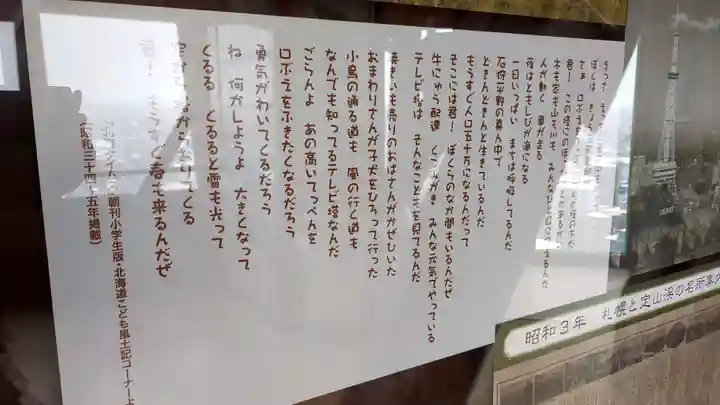 まって
ぼくは きょう
さあ ロぶえ
君！ この塔にのぼ
木も家も山も川も みんな
人が動く 車が走る
夜はともしびが海になる
一日いっぱい まちは呼吸してるんだ
石狩平野の真ん中で
どきんどきんと生きているんだ
もうすぐ人口五十万になるんだって
そこには君！ ぼくらのなか間もいるんだぜ
牛にゅう配達 くつみがき みんな元気でやっている
テレビ塔は そんなことも見てるんだ
焼きいも売りのおばさんがかぜひいた
おまわりさんが子犬をひろって行った
小鳥の通る道も 風の行く道も
なんでも知ってるテレビ塔なんだ
ごらんよ あの高いてっぺんを
口ぶえをふきたくなるだろう
勇気がわいてくるだろう
ね 何かしようよ 大きくなって
くるる くるると雪も光って
空から春がおりてくる
君！ もうすぐ春も来るんだぜ
北海タイムス朝刊小学生版・北海道こども風土記コーナーよ
（昭和三十四～五年掲載）
昭和3年 札幌と定山渓の名所案内